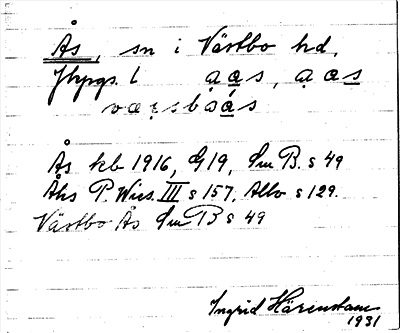 Ås, sn i Västbo hd,
Jkpgs. l
Ås kb 1916, G19, Sm B. s 49
Åhs P. Wies. III s 157, Allvo s 129.
Västbo Ås Sm B s 49
Ingrid Härenstam
1931